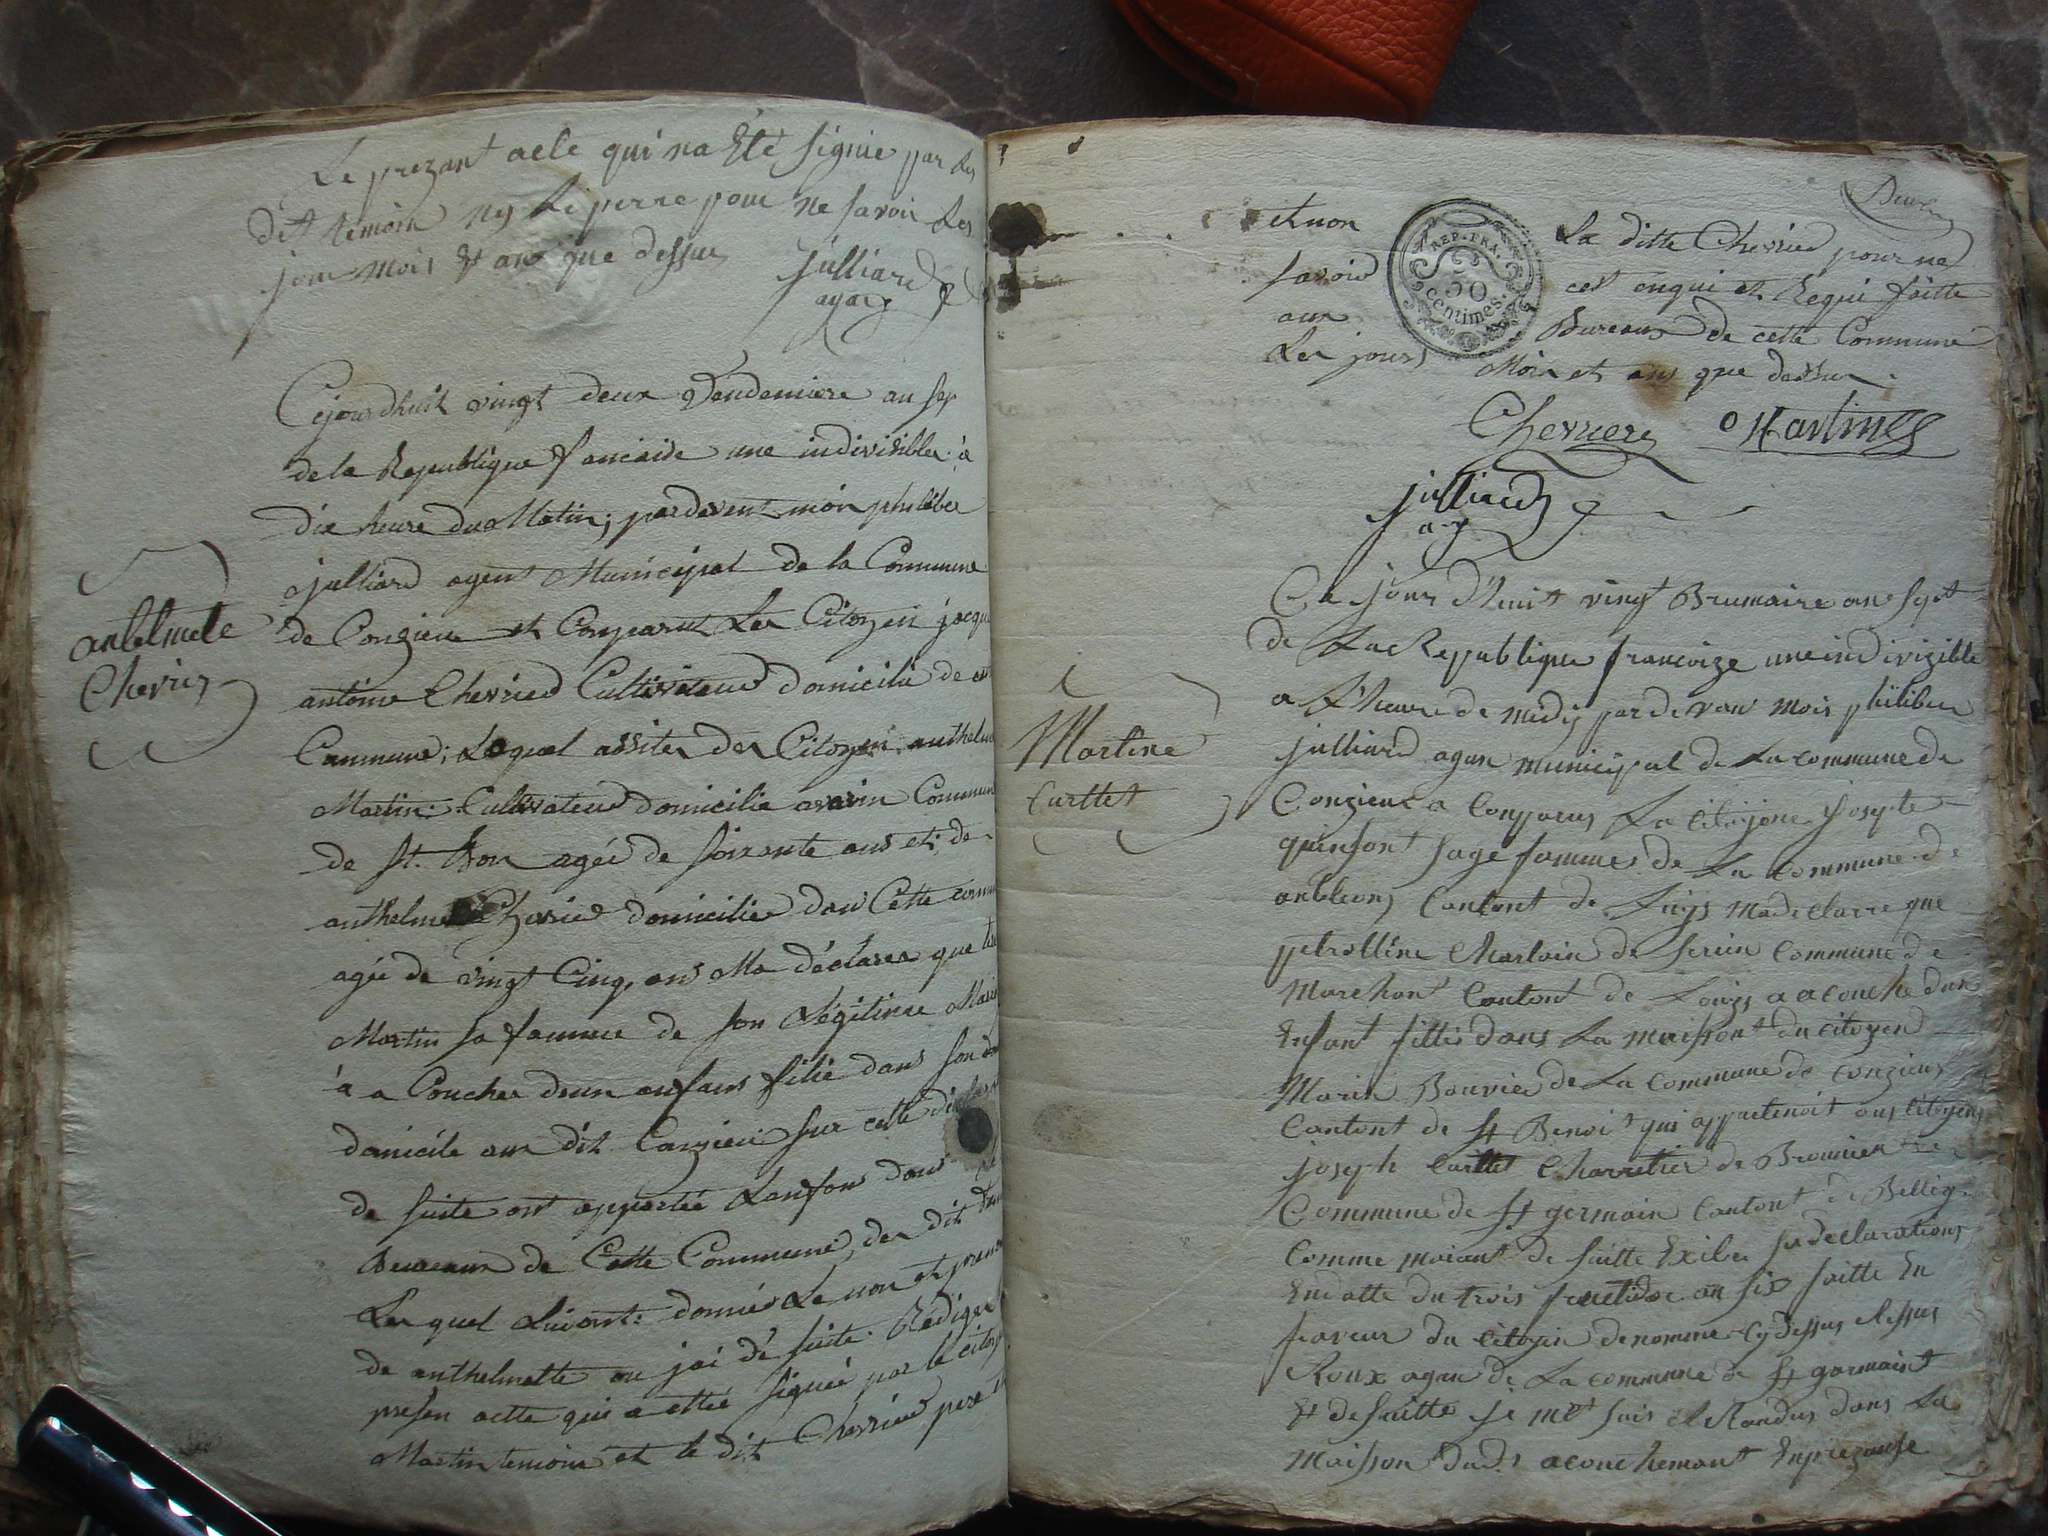 Le prezant acte qui na Eté signie par les
dit temoin ny Le perre pour ne savoir Les
jour mois et ans que dessus julliard
agan
Cejourdhuit vingt deux Vendemiere an sep
de la Republique francaise une indivisible à
dix heure du Matin; pardevent moin philiber
julliard agent Municipal de la Commune
de Conzieu et Comparut Les Citoyen jacque
antoine Chevrier Cultivateur domicilié de cette
Commune; Lequel assiter des Citoyen anthelme
Martin Cultivateur domicilié Commune
de St. Bon agée de soixente ans et de
anthelme Chevrier domicilié dans Cette comm
agée de vingt Cinq ans Ma déclarer que
Martin sa famme de son Légitime Mariage
à a Coucher deun anfans fillie dans son
domicile au dit Conzieu sur cette
de suite ont apportée Lanfans dans
Bureaux de Cette Commune, des dit
Les quel Lui ont donnée Le non et prenon
de anthelmette ou jai de suite Rédiger
presen actte qui a ettée signée par le citoyen
Martin temoin et le dit Chevrier pere
anthelmete
Chevrier
et non La ditte Chevrier pour ne
savoir ce enqui et Requi faitte
aux Bureaux de cette Commune
Les jours Mois et ans que dessus
30
REP. FRA.
centimes.
Chevrier Martin
julliard
ag
Ce jour d'huit vingt Brumaire an Sept
de La Republique francoize une indivizible
a L'heure de midy pardevan mois philiber
julliard agan municipal de La commune de
Conzieux a Comparus La Citoyene Josepte
quinsont sage famme de La Commune de
anbleon Cantont de Luys Ma declarre que
petrolline Charloin de Commune de
Marchant Cantont de Louys a acouche dun
Enfant fillie dans La maisont du citoyen
Marin Bouvier de La commune de conzieux
Cantont de St Benoit qui appartenoit aus Citoyens
joseph Curttet Charretier de Brounier
Commune de St germain Cantont de Belleg
Comme moiant de suitte Exiber sa declarations
En datte du trois fructidor an six faitte En
faveur du citoyin denomme cy dessus
Roux agan de La commune de St germaint
Et de suitte je met suis Randus dans La
Maisson dud. acouchemant En prezanse
Martine
Curttet